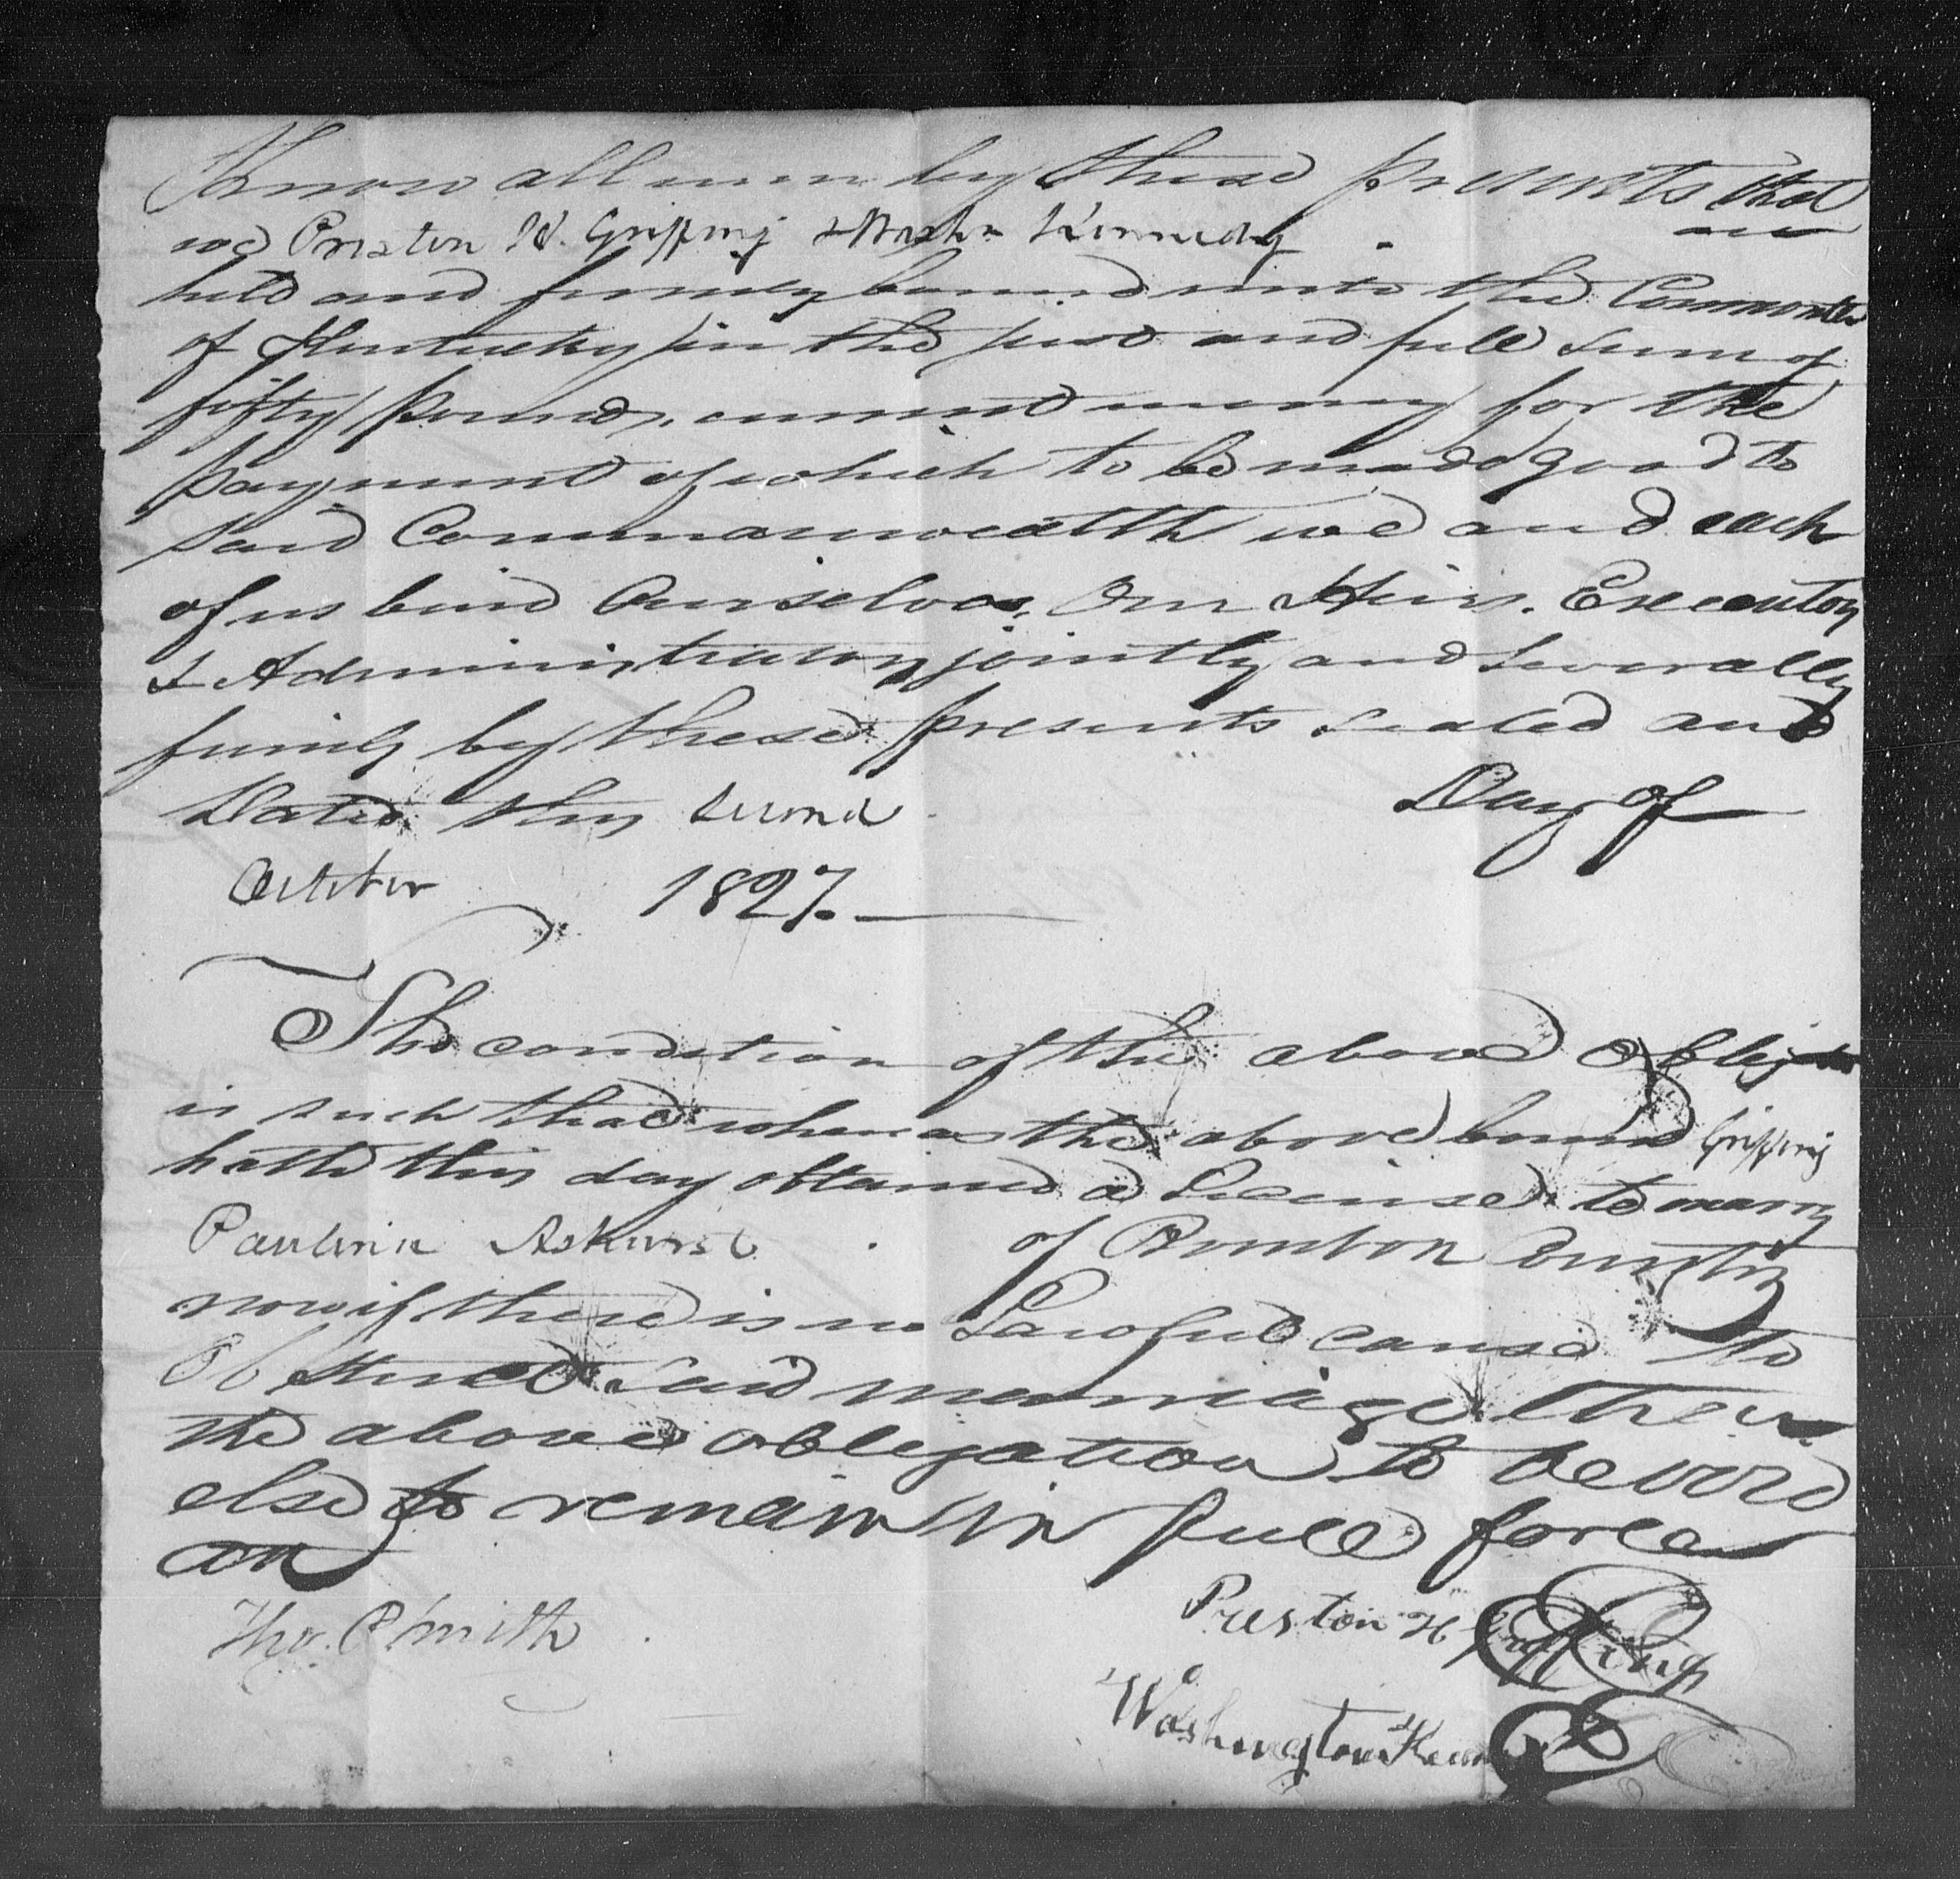 Know all men by these presents that
we Preston W. Griffing & Washn Kennedy are
held and firmly bound unto the Commonwlth
of Kentucky in the just and full sum of
fifty pounds, current money for the
payment of which to be made good to
said Commonwealth we and each
of us bind Ourselves, Our Heirs. Executors
& Administrators jointly and severally
firmly by these presents sealed and
Dated this second Day of
October 1827.
The condition of the above Obligation
is such that whereas the above bound Griffing
hath this day obtained a License to marry
Paulina Ashurst of Bourbon County
now if there is no Lawful cause to
Obstruct said marriage then
the above obligation to be void
else to remain in full force
Tho. P Smith
Preston H Griffing
Washington Kenn